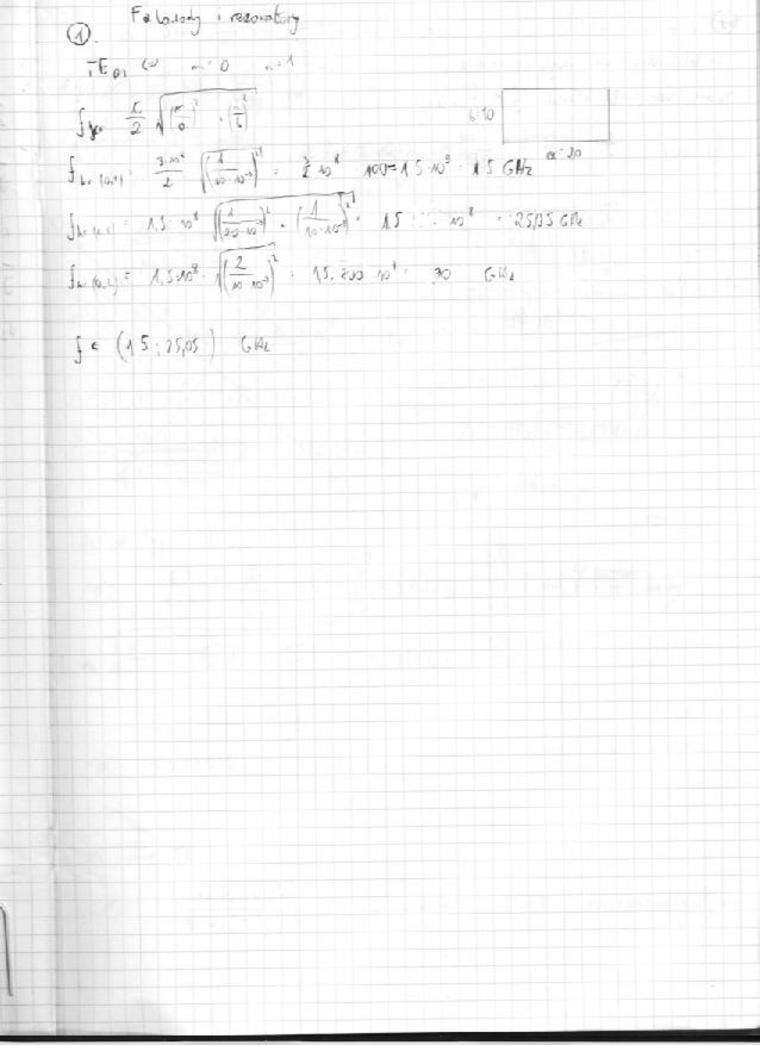 ① Falowody i rezonatory
TE₀₁ <=> m=0 n=1
f = c/2 √((m/a)² + (n/b)²)
b=10
a=20
f (0,1) = 3·10⁸/2 √((1/10·10⁻³)²) = 3/2 10⁸ · 100 = 15·10⁹ = 15 GHz
f = 1,5·10⁸ √((1/20·10⁻³)² + (1/10·10⁻³)²) = 1,5 10⁸ = 25,05 GHz
f (0,2) = 1,5·10⁸ · √((2/10·10⁻³)²) = 1,5·200·10⁸ = 30 GHz
f ∈ (15 ; 25,05) GHz